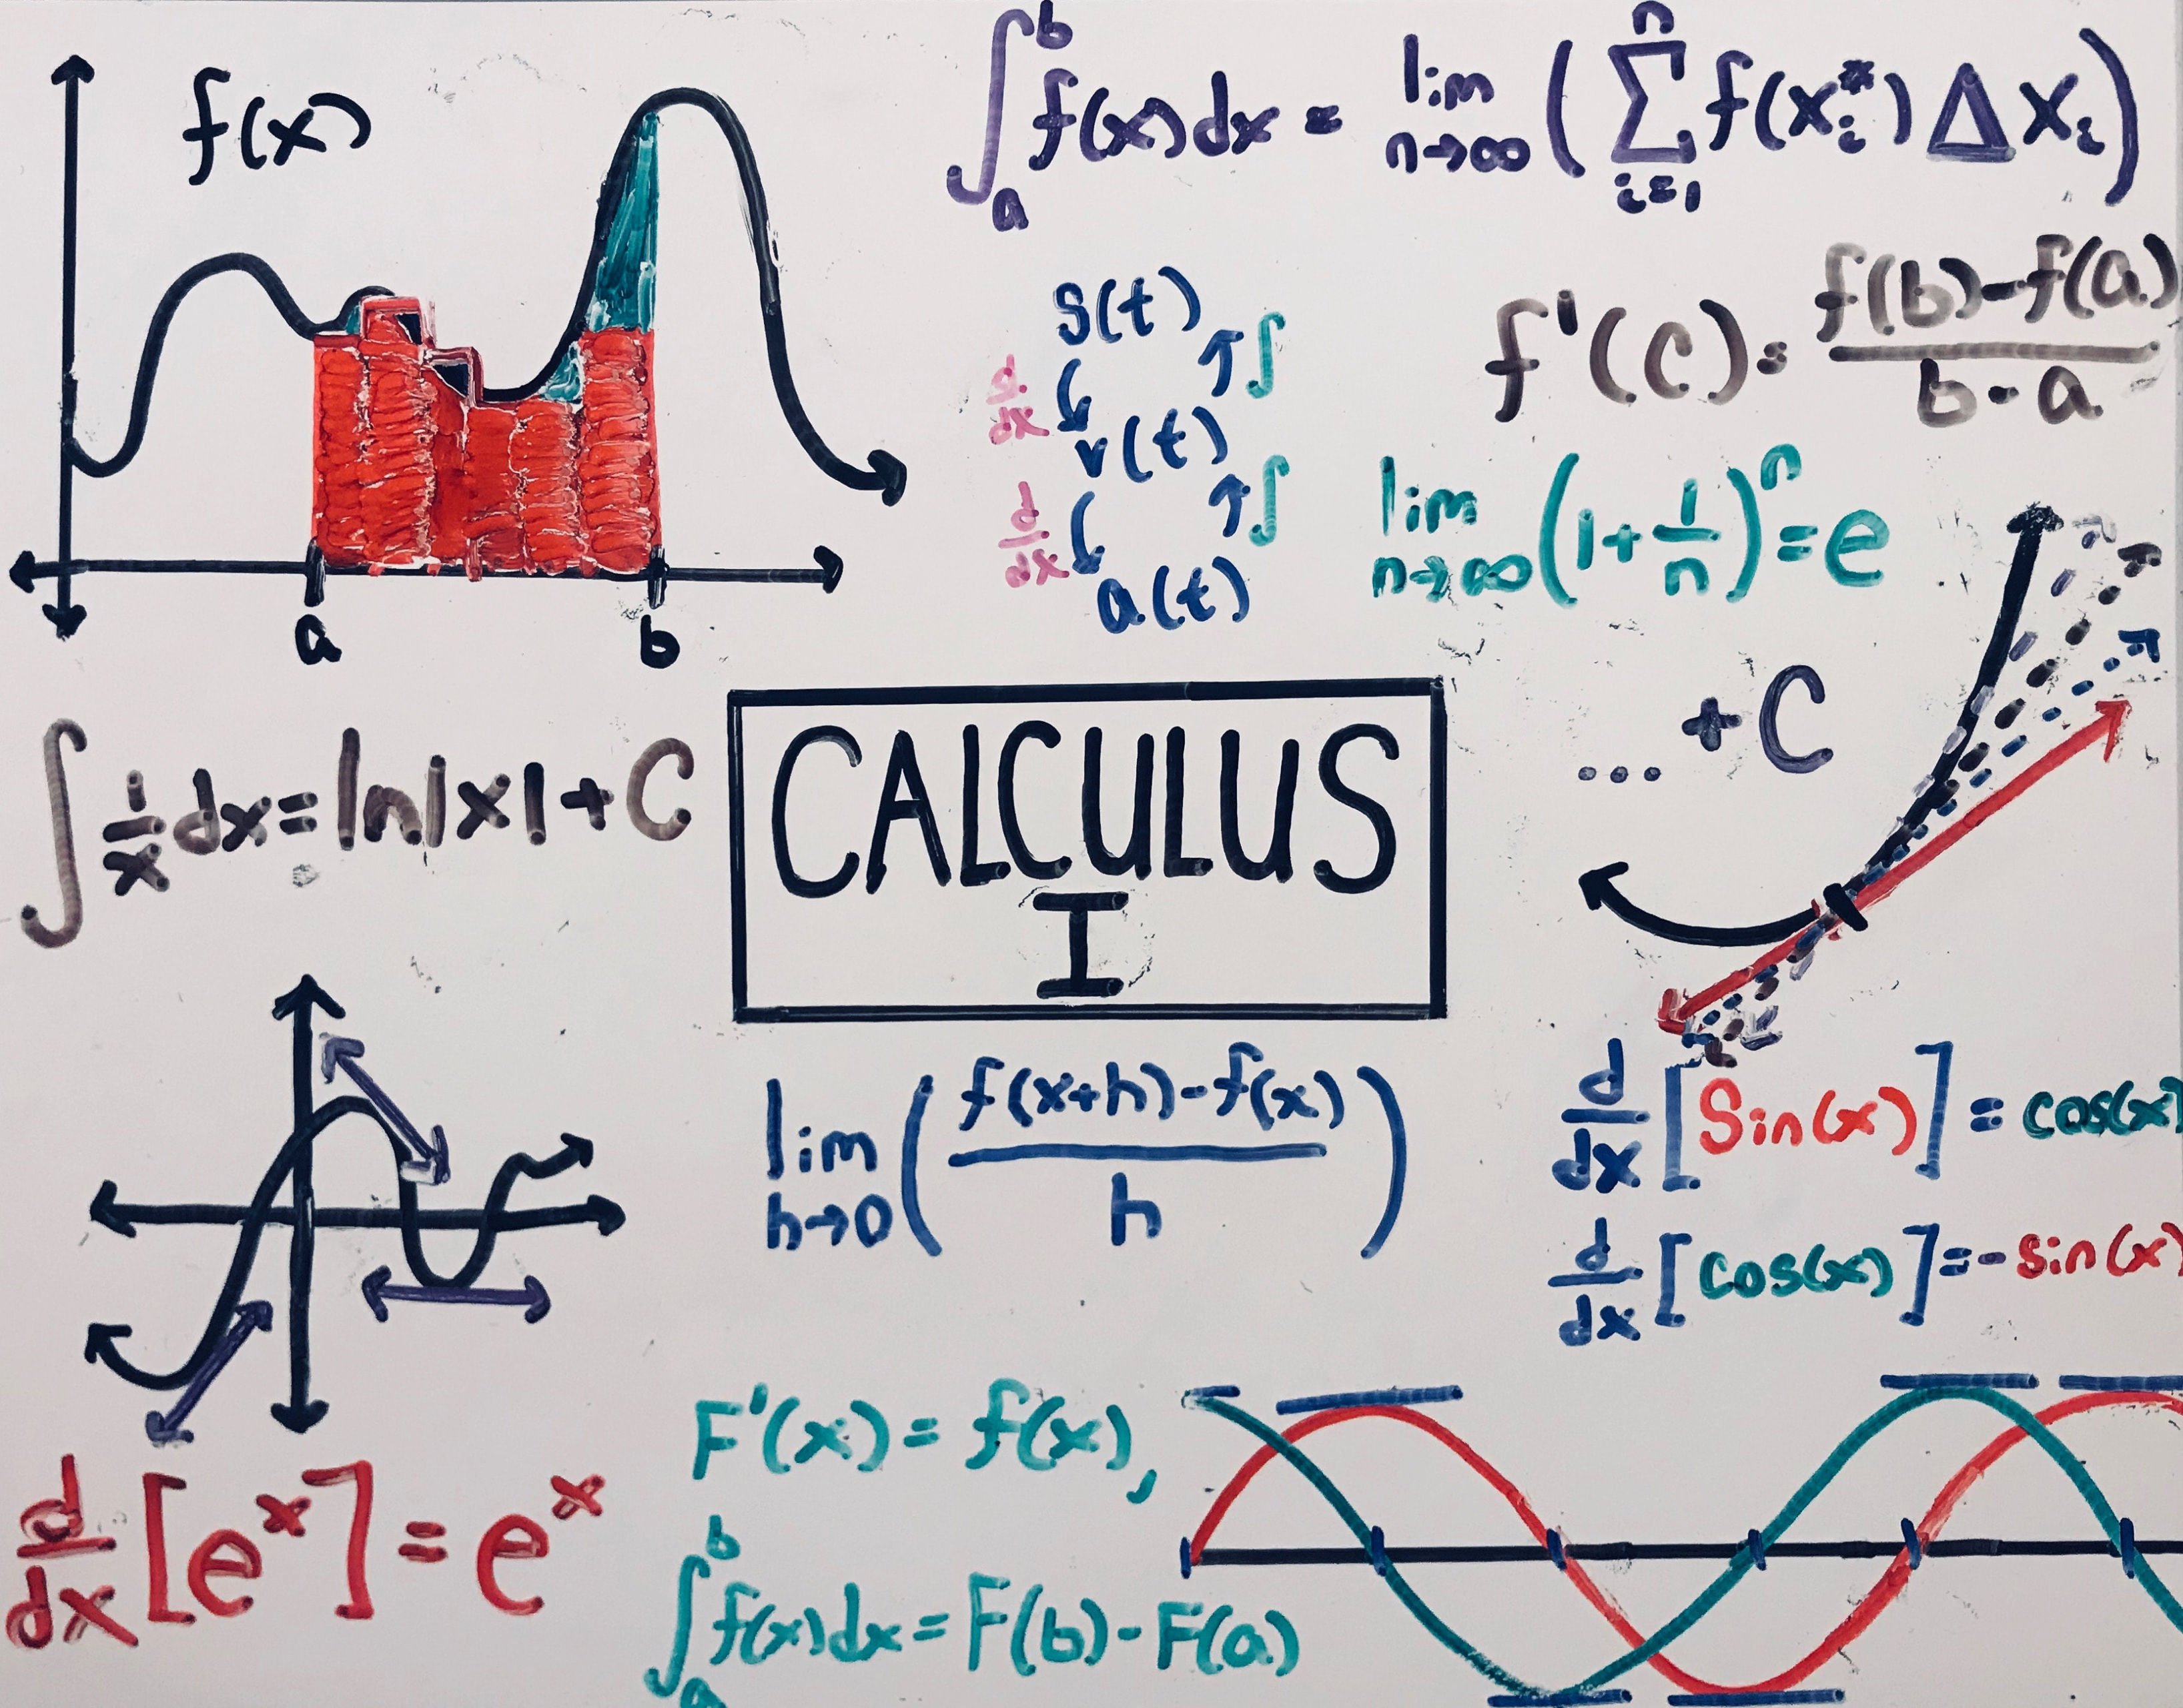 f(x)
∫_a^b f(x)dx = lim_{n→∞} ( Σ_{i=1}^n f(x_i^*) Δx_i )
a b
S(t)
d/dx ∫
v(t)
d/dx ∫
a(t)
f'(C) = (f(b)-f(a))/(b-a)
lim_{n→∞} (1+1/n)^n = e
... +C
∫ 1/x dx = ln|x| + C
CALCULUS
I
lim_{h→0} ( (f(x+h)-f(x))/h )
d/dx [Sin(x)] = cos(x)
d/dx [cos(x)] = -sin(x)
d/dx [e^x] = e^x
F'(x) = f(x),
∫_a^b f(x)dx = F(b) - F(a)